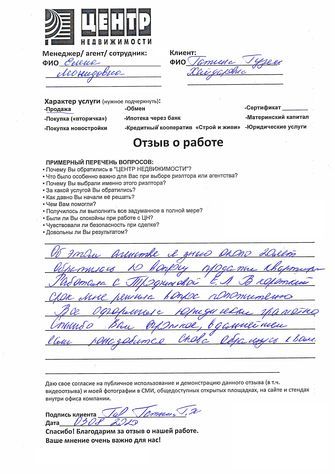 ЦЕНТР
НЕДВИЖИМОСТИ
Менеджер/ агент/ сотрудник:
ФИО Елена
Леонидовна
Клиент:
ФИО Гузель
Характер услуги (нужное подчеркнуть):
-Продажа
-Обмен
-Сертификат
-Покупка «вторичка»)
-Ипотека через банк
-Материнский капитал
-Покупка новостройки
-Кредитный кооператив «Строй и живи»
-Юридические услуги
Отзыв о работе
ПРИМЕРНЫЙ ПЕРЕЧЕНЬ ВОПРОСОВ:
• Почему Вы обратились в "ЦЕНТР НЕДВИЖИМОСТИ"?
• Что было особенно важно для Вас при выборе риэлтора или агентства?
• Почему Вы выбрали именно этого риэлтора?
• За какой услугой Вы обратились?
• Как давно Вы начали её решать?
• Чем Вам помогли?
• Получилось ли выполнить все задуманное в полной мере?
• Были ли Вы спокойны при работе с ЦН?
• Чувствовали ли безопасность при сделке?
• Довольны ли Вы результатом?
Об этом агентстве я знаю около 20 лет
обратилась по вопросу продажи квартиры
Работала с Е.Л. В короткий
срок мне решили вопрос положительно
Все оформили юридически грамотно
Спасибо Вам огромное, в дальнейшем
если понадобится снова обращусь к Вам.
Даю свое согласие на публичное использование и демонстрацию данного отзыва (в т.ч.
видеоотзыва) и моей фотографии в СМИ, общедоступных открытых площадках, на сайте и стендах
внутри офиса компании.
Подпись клиента
Дата
Спасибо! Благодарим за отзыв о нашей работе.
Ваше мнение очень важно для нас!